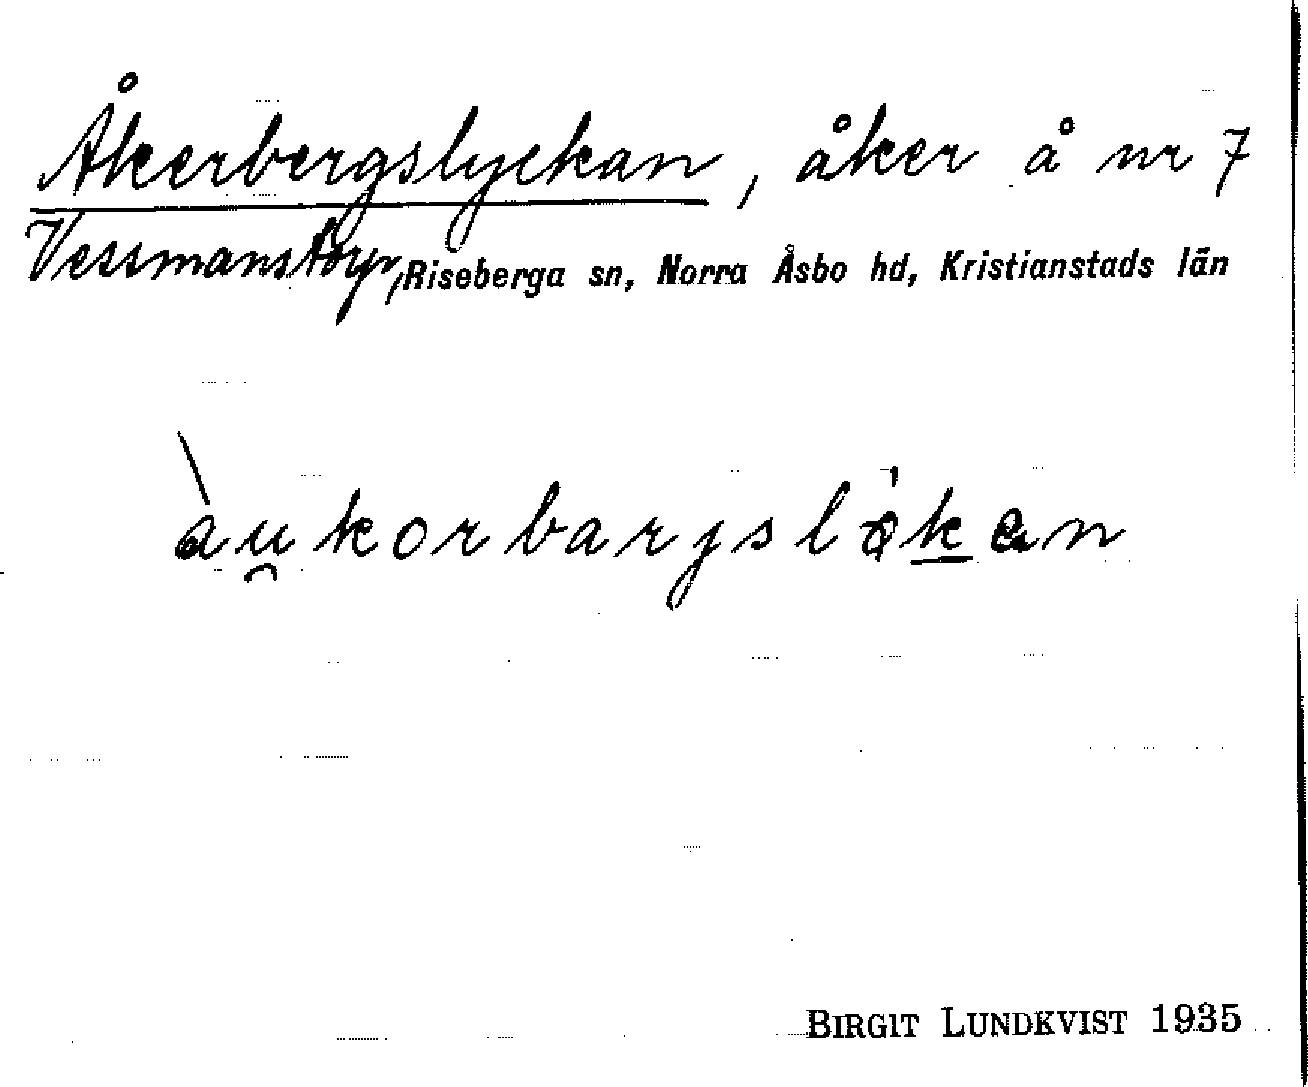 Åkerbergslyckan, åker å nr 7
Vessmanstorp, Riseberga sn, Norra Åsbo hd, Kristianstads län
àu̯korbarjsløkan
BIRGIT LUNDKVIST 1935